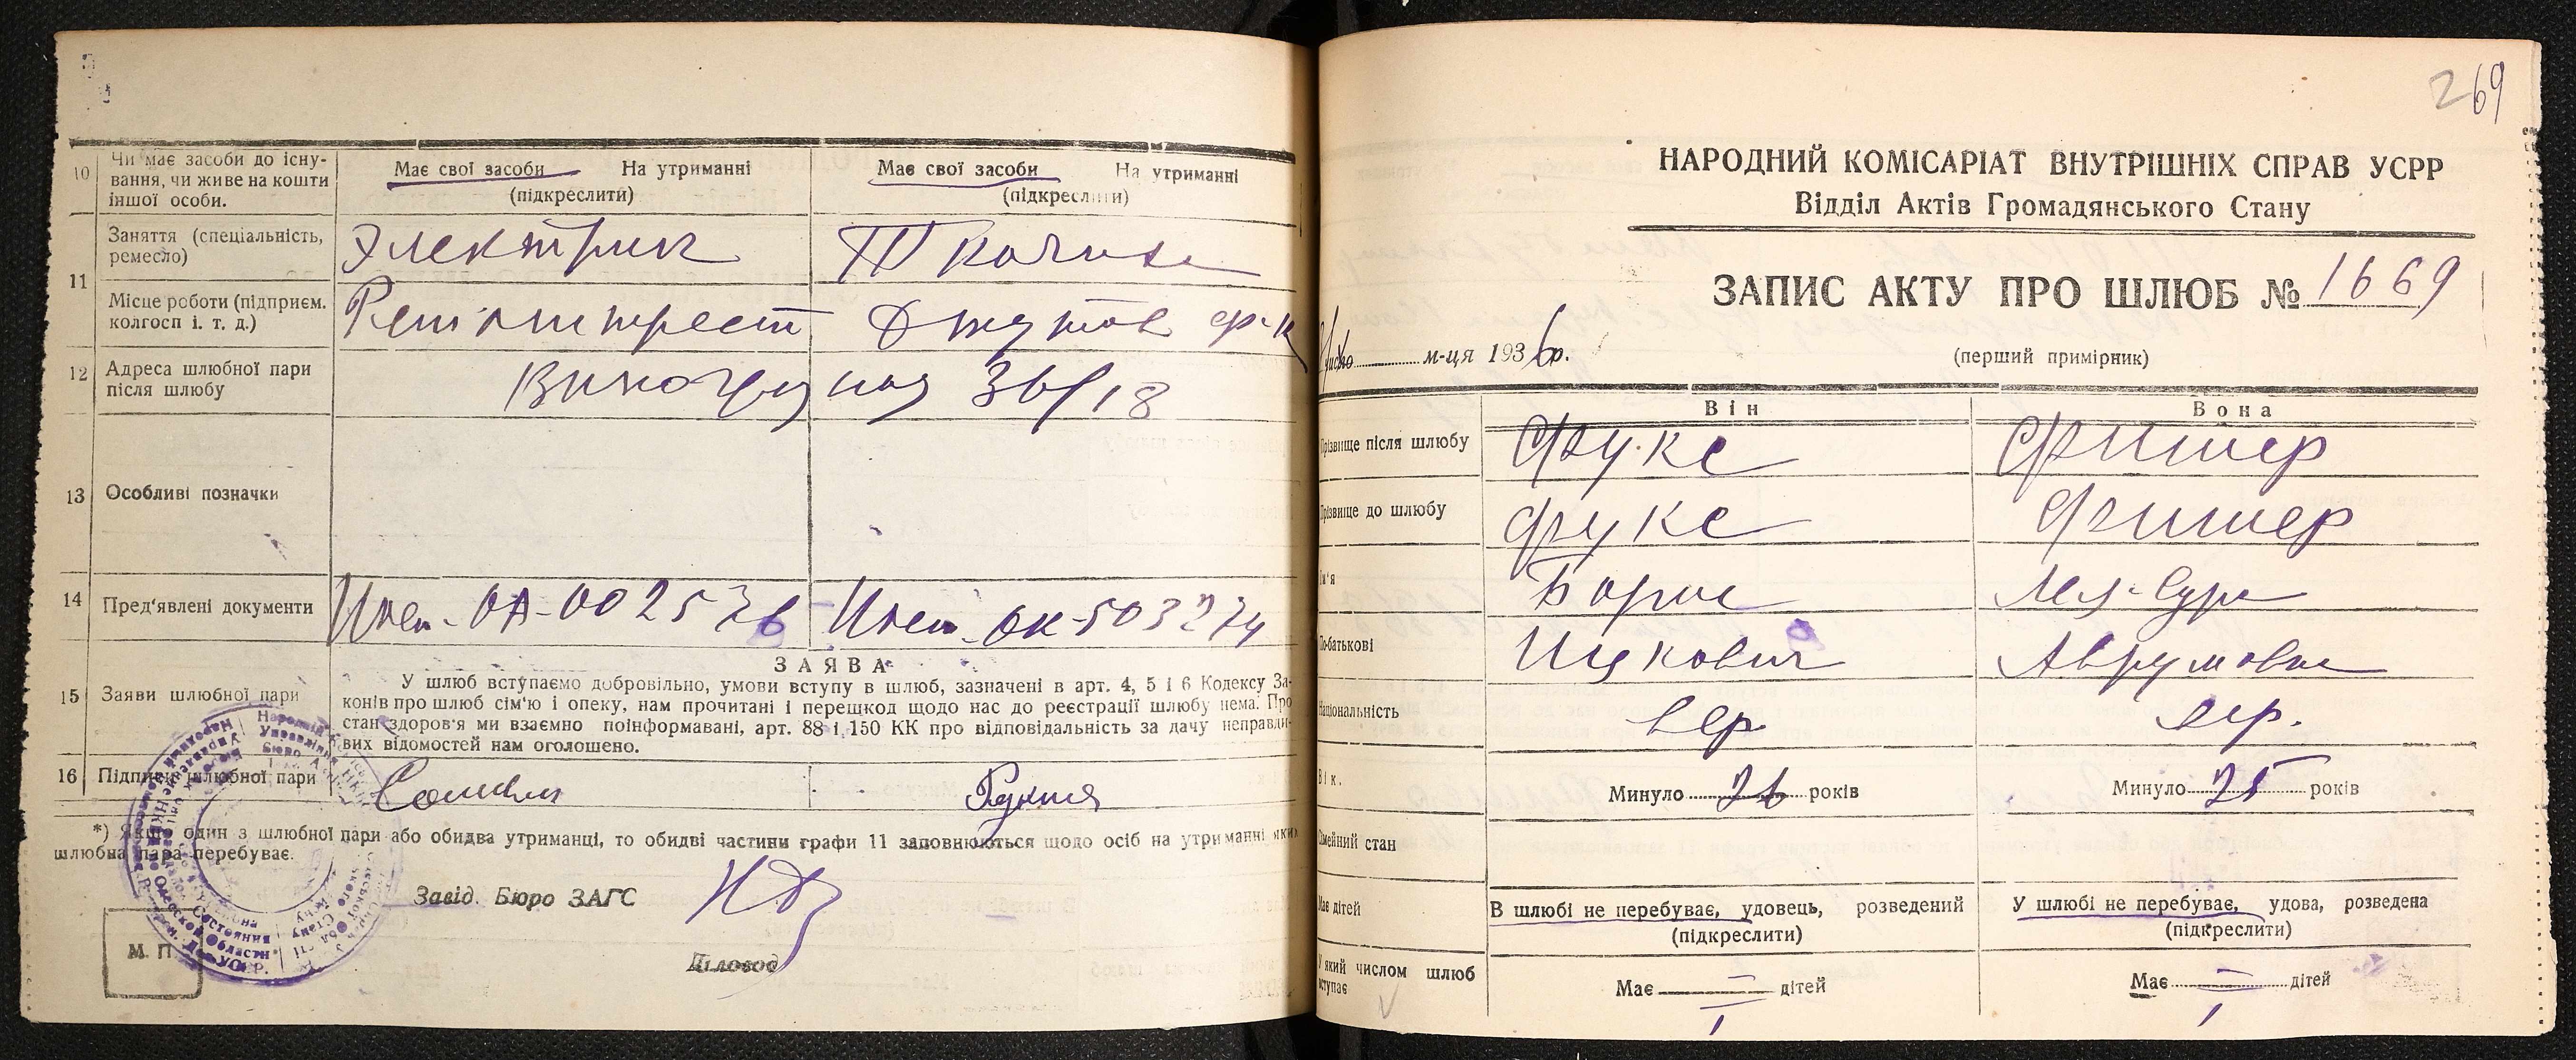 10 Чи має засоби до існу-
вання, чи живе на кошти
іншої особи.
Має свої засоби На утриманні
(підкреслити)
Має свої засоби На утриманні
(підкреслити)
11 Заняття (спеціальність,
ремесло)
Электрик
Ткачиха
Місце роботи (підприєм.
колгосп і. т. д.)
Джутов ф-к
12 Адреса шлюбної пари
після шлюбу
36/18
13 Особливі позначки
14 Пред'явлені документи
ОА-002576
ОК-503274
ЗАЯВА
15 Заяви шлюбної пари
У шлюб вступаємо добровільно, умови вступу в шлюб, зазначені в арт. 4, 5 і 6 Кодексу За-
конів про шлюб сім'ю і опеку, нам прочитані і перещкод щодо нас до реєстрації шлюбу нема. Про
стан здоров'я ми взаємно поінформавані, арт. 88 і 150 КК про відповідальність за дачу неправди-
вих відомостей нам оголошено.
16 Підписи шлюбної пари
*) Якщо один з шлюбної пари або обидва утриманці, то обидві частини графи 11 заповнюються щодо осіб на утриманні яких
шлюбна пара перебуває.
Завід. Бюро ЗАГС
М. П.
Діловод
269
НАРОДНИЙ КОМІСАРІАТ ВНУТРІШНІХ СПРАВ УСРР
Відділ Актів Громадянського Стану
ЗАПИС АКТУ ПРО ШЛЮБ № 1669
м-ця 1936 р.
(перший примірник)
Він
Вона
Прізвище після шлюбу
Фукс
Фишер
Прізвище до шлюбу
Фукс
Фишер
Ім'я
Борис
Лея-Сура
По-батькові
Ицкович
Аврумовна
Національність
евр
евр.
Вік.
Минуло 26 років
Минуло 25 років
Сімейний стан
Має дітей
В шлюбі не перебуває, удовець, розведений
(підкреслити)
У шлюбі не перебуває, удова, розведена
(підкреслити)
У який числом шлюб
вступає
Має — дітей
Має — дітей
I
I